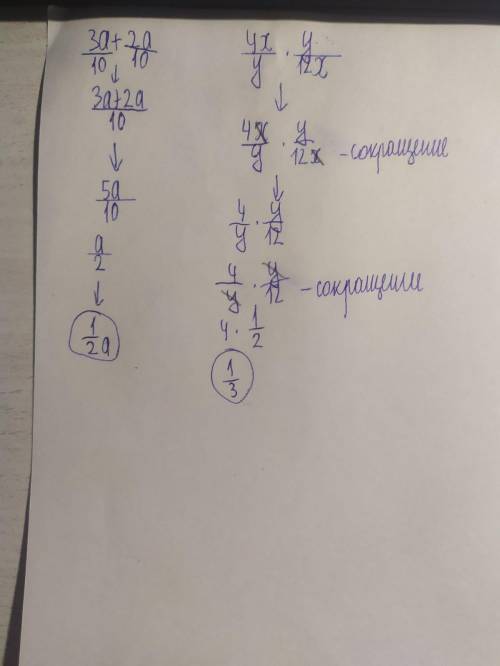 3a/10 + 2a/10
↓
3a+2a/10
↓
5a/10
a/2
↓
1/2 a
4x/y · y/12x
↓
4x/y · y/12x - сокращение
↓
4/y · y/12
4/y · y/12 - сокращение
4 · 1/2
1/3